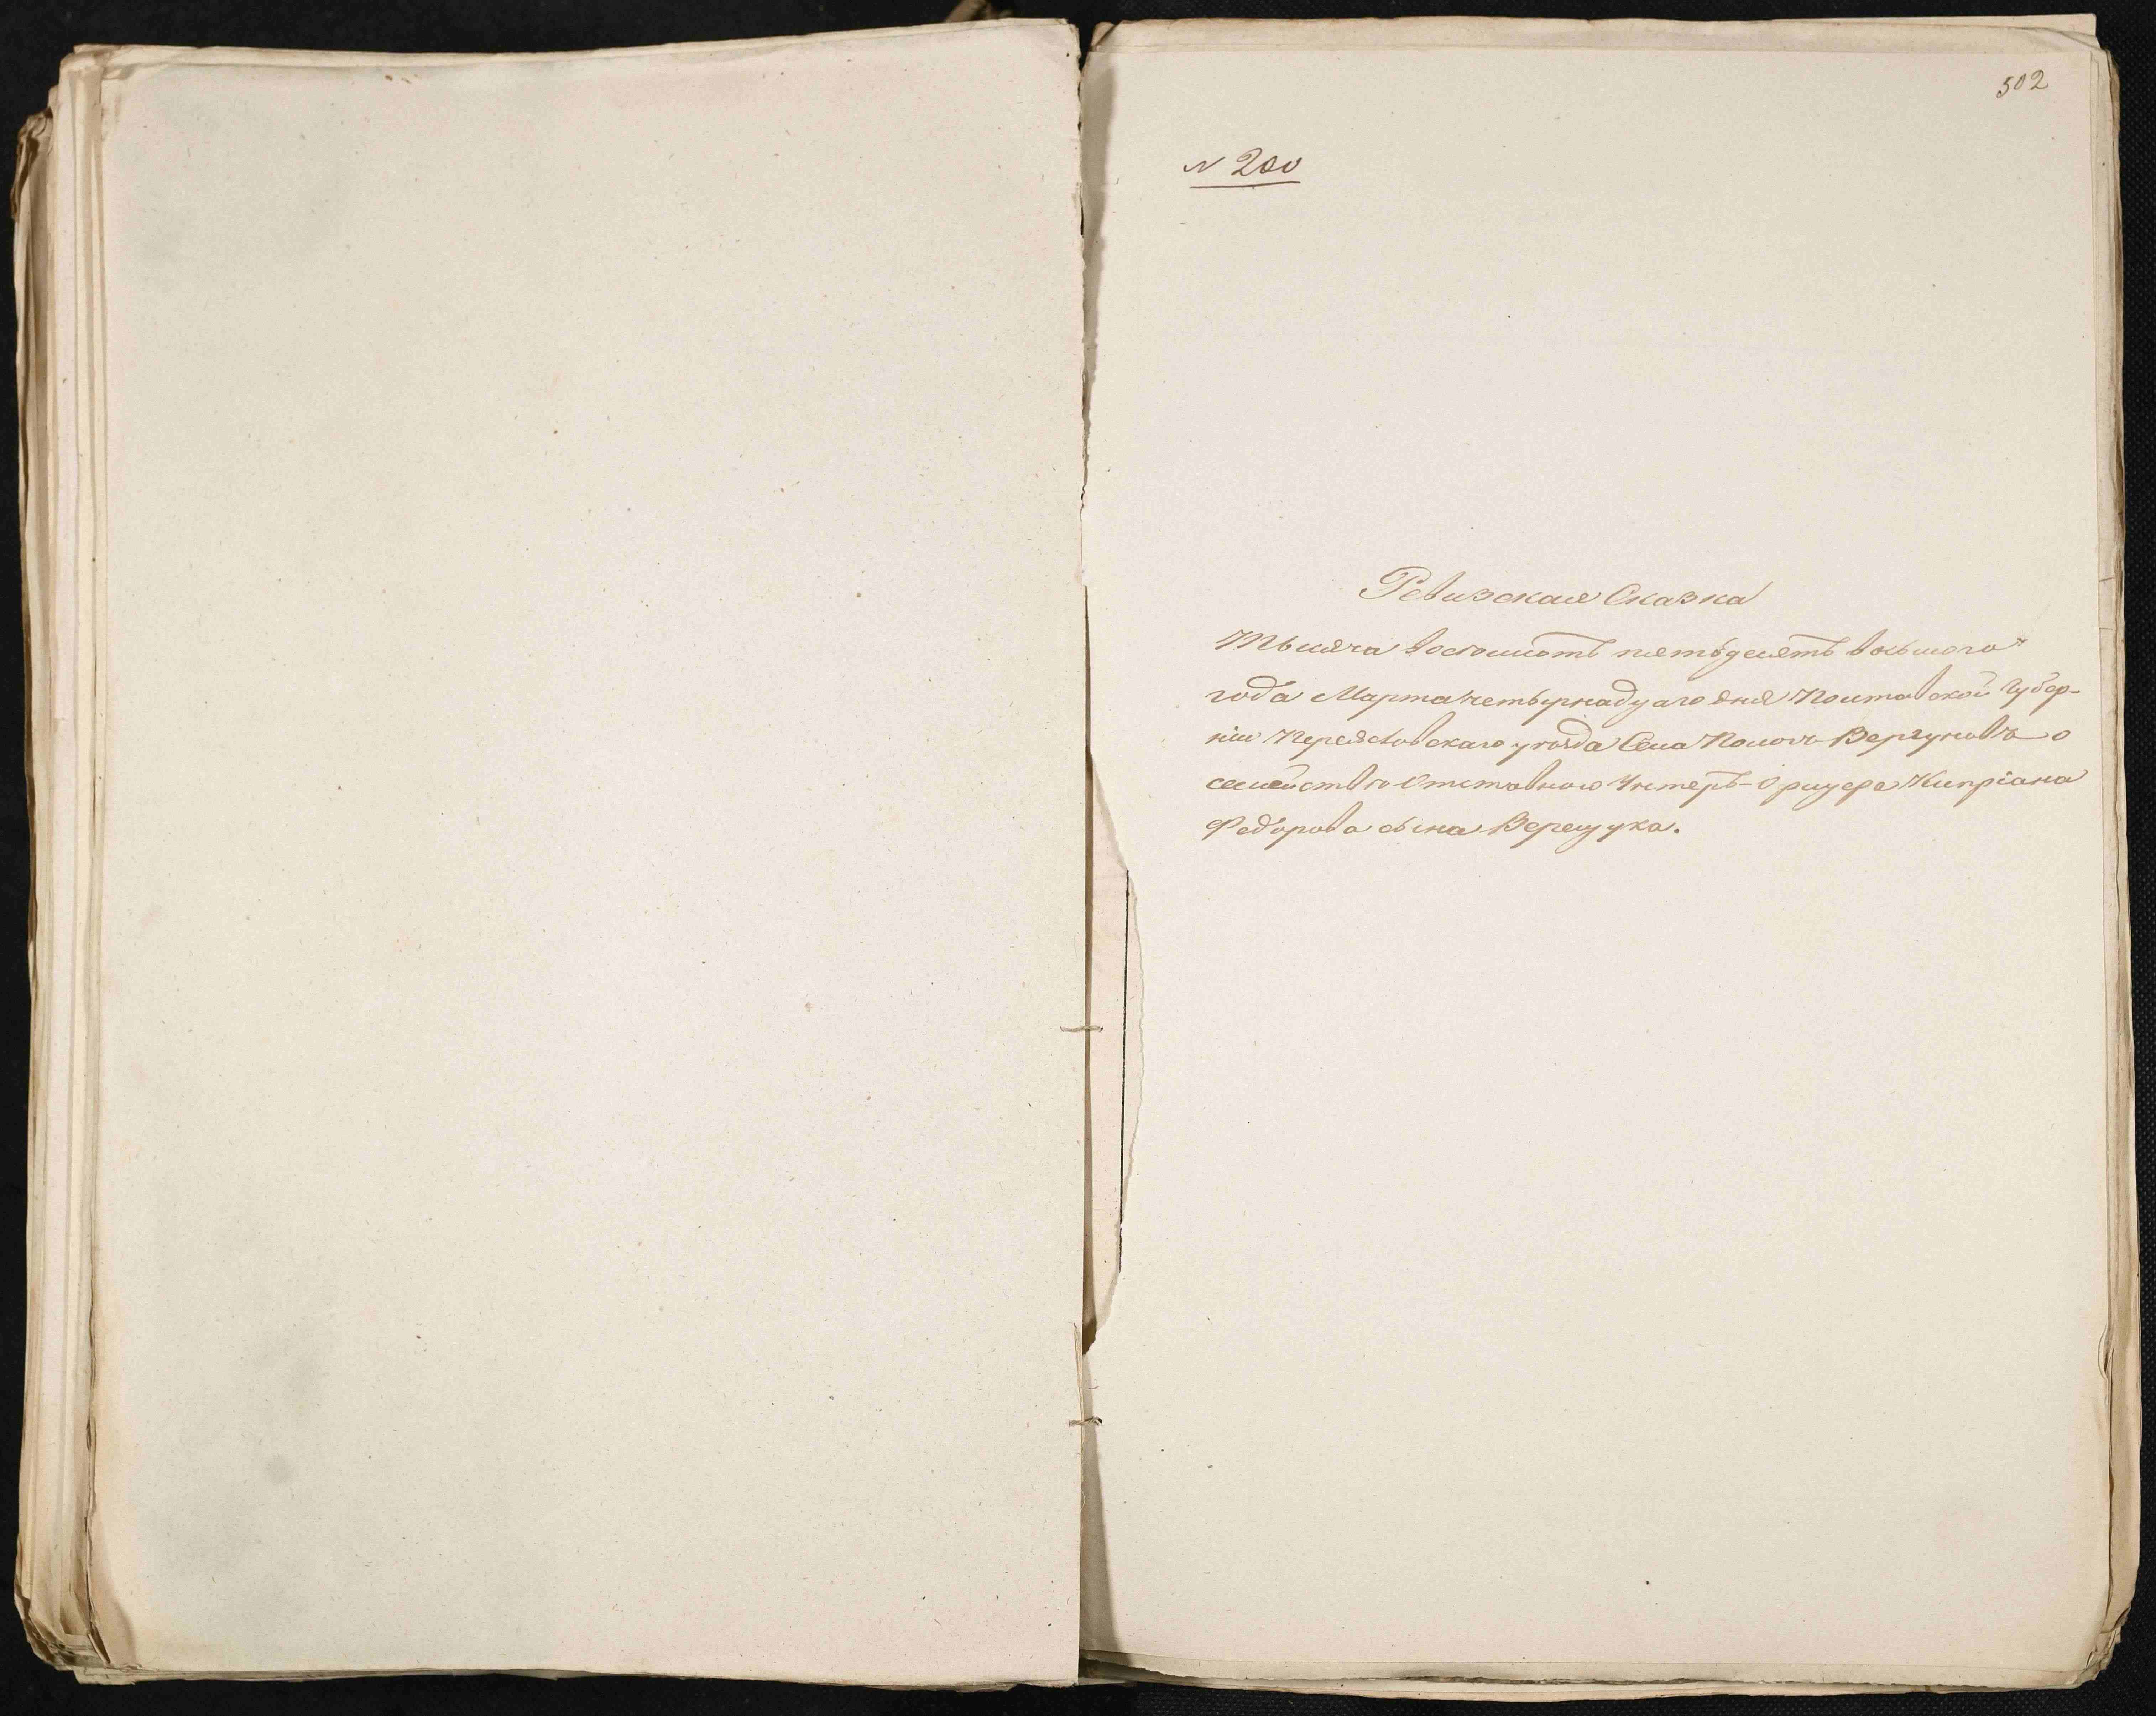 502
N 200
Ревизская Сказка
Тысяча восемьсотъ пятьдесятъ восьмого
года Марта четырнадцаго дня Полтавской Губер-
ніи Переяславскаго уѣзда Села Вергуновъ о
семействѣ Отставного Унтеръ-Офицера Кипріана
Федорова сына Верещука.